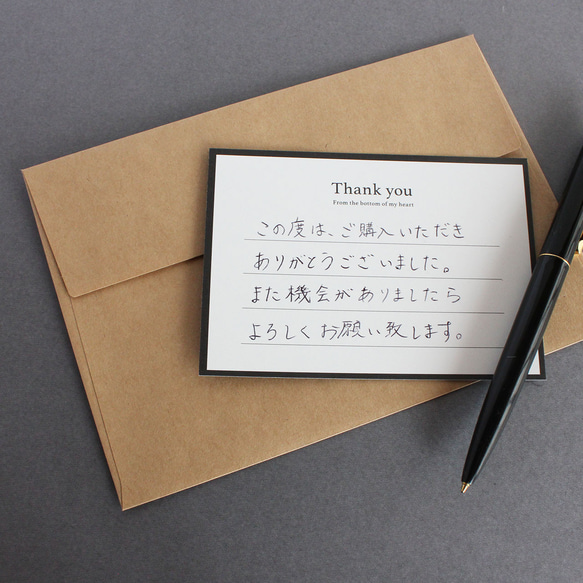 Thank you
From the bottom of my heart
この度は、ご購入いただき
ありがとうございました。
また機会がありましたら
よろしくお願い致します。